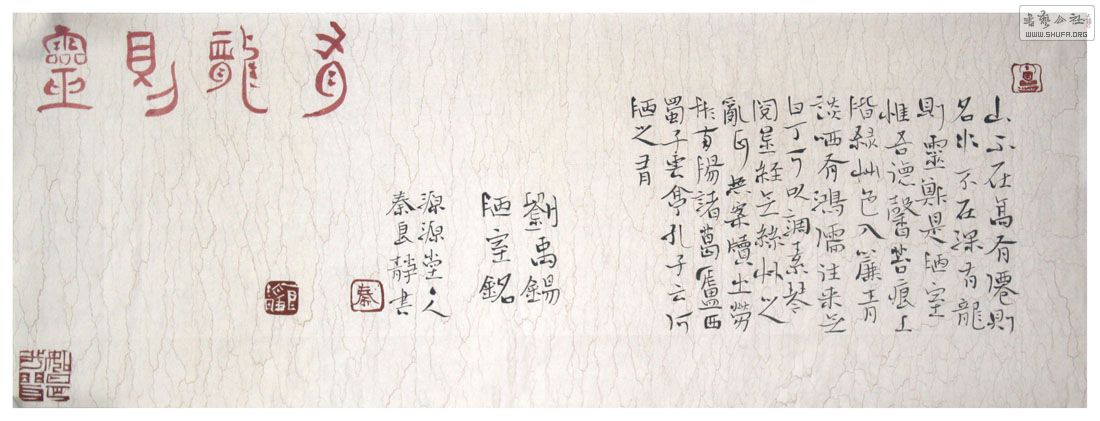 有龍則靈
山不在高有僊則
名水不在深有龍
則靈斯是陋室
惟吾德馨苔痕上
階綠艸色入簾青
談哂有鴻儒往来无
白丁可以調素琴
閱金経无絲竹之
亂耳無案牘之勞
形南陽諸葛廬西
蜀子雲亭孔子云何
陋之有
劉禹錫
陋室銘
源源堂主人
秦良靜書
秦
书艺公社
WWW.SHUFA.ORG